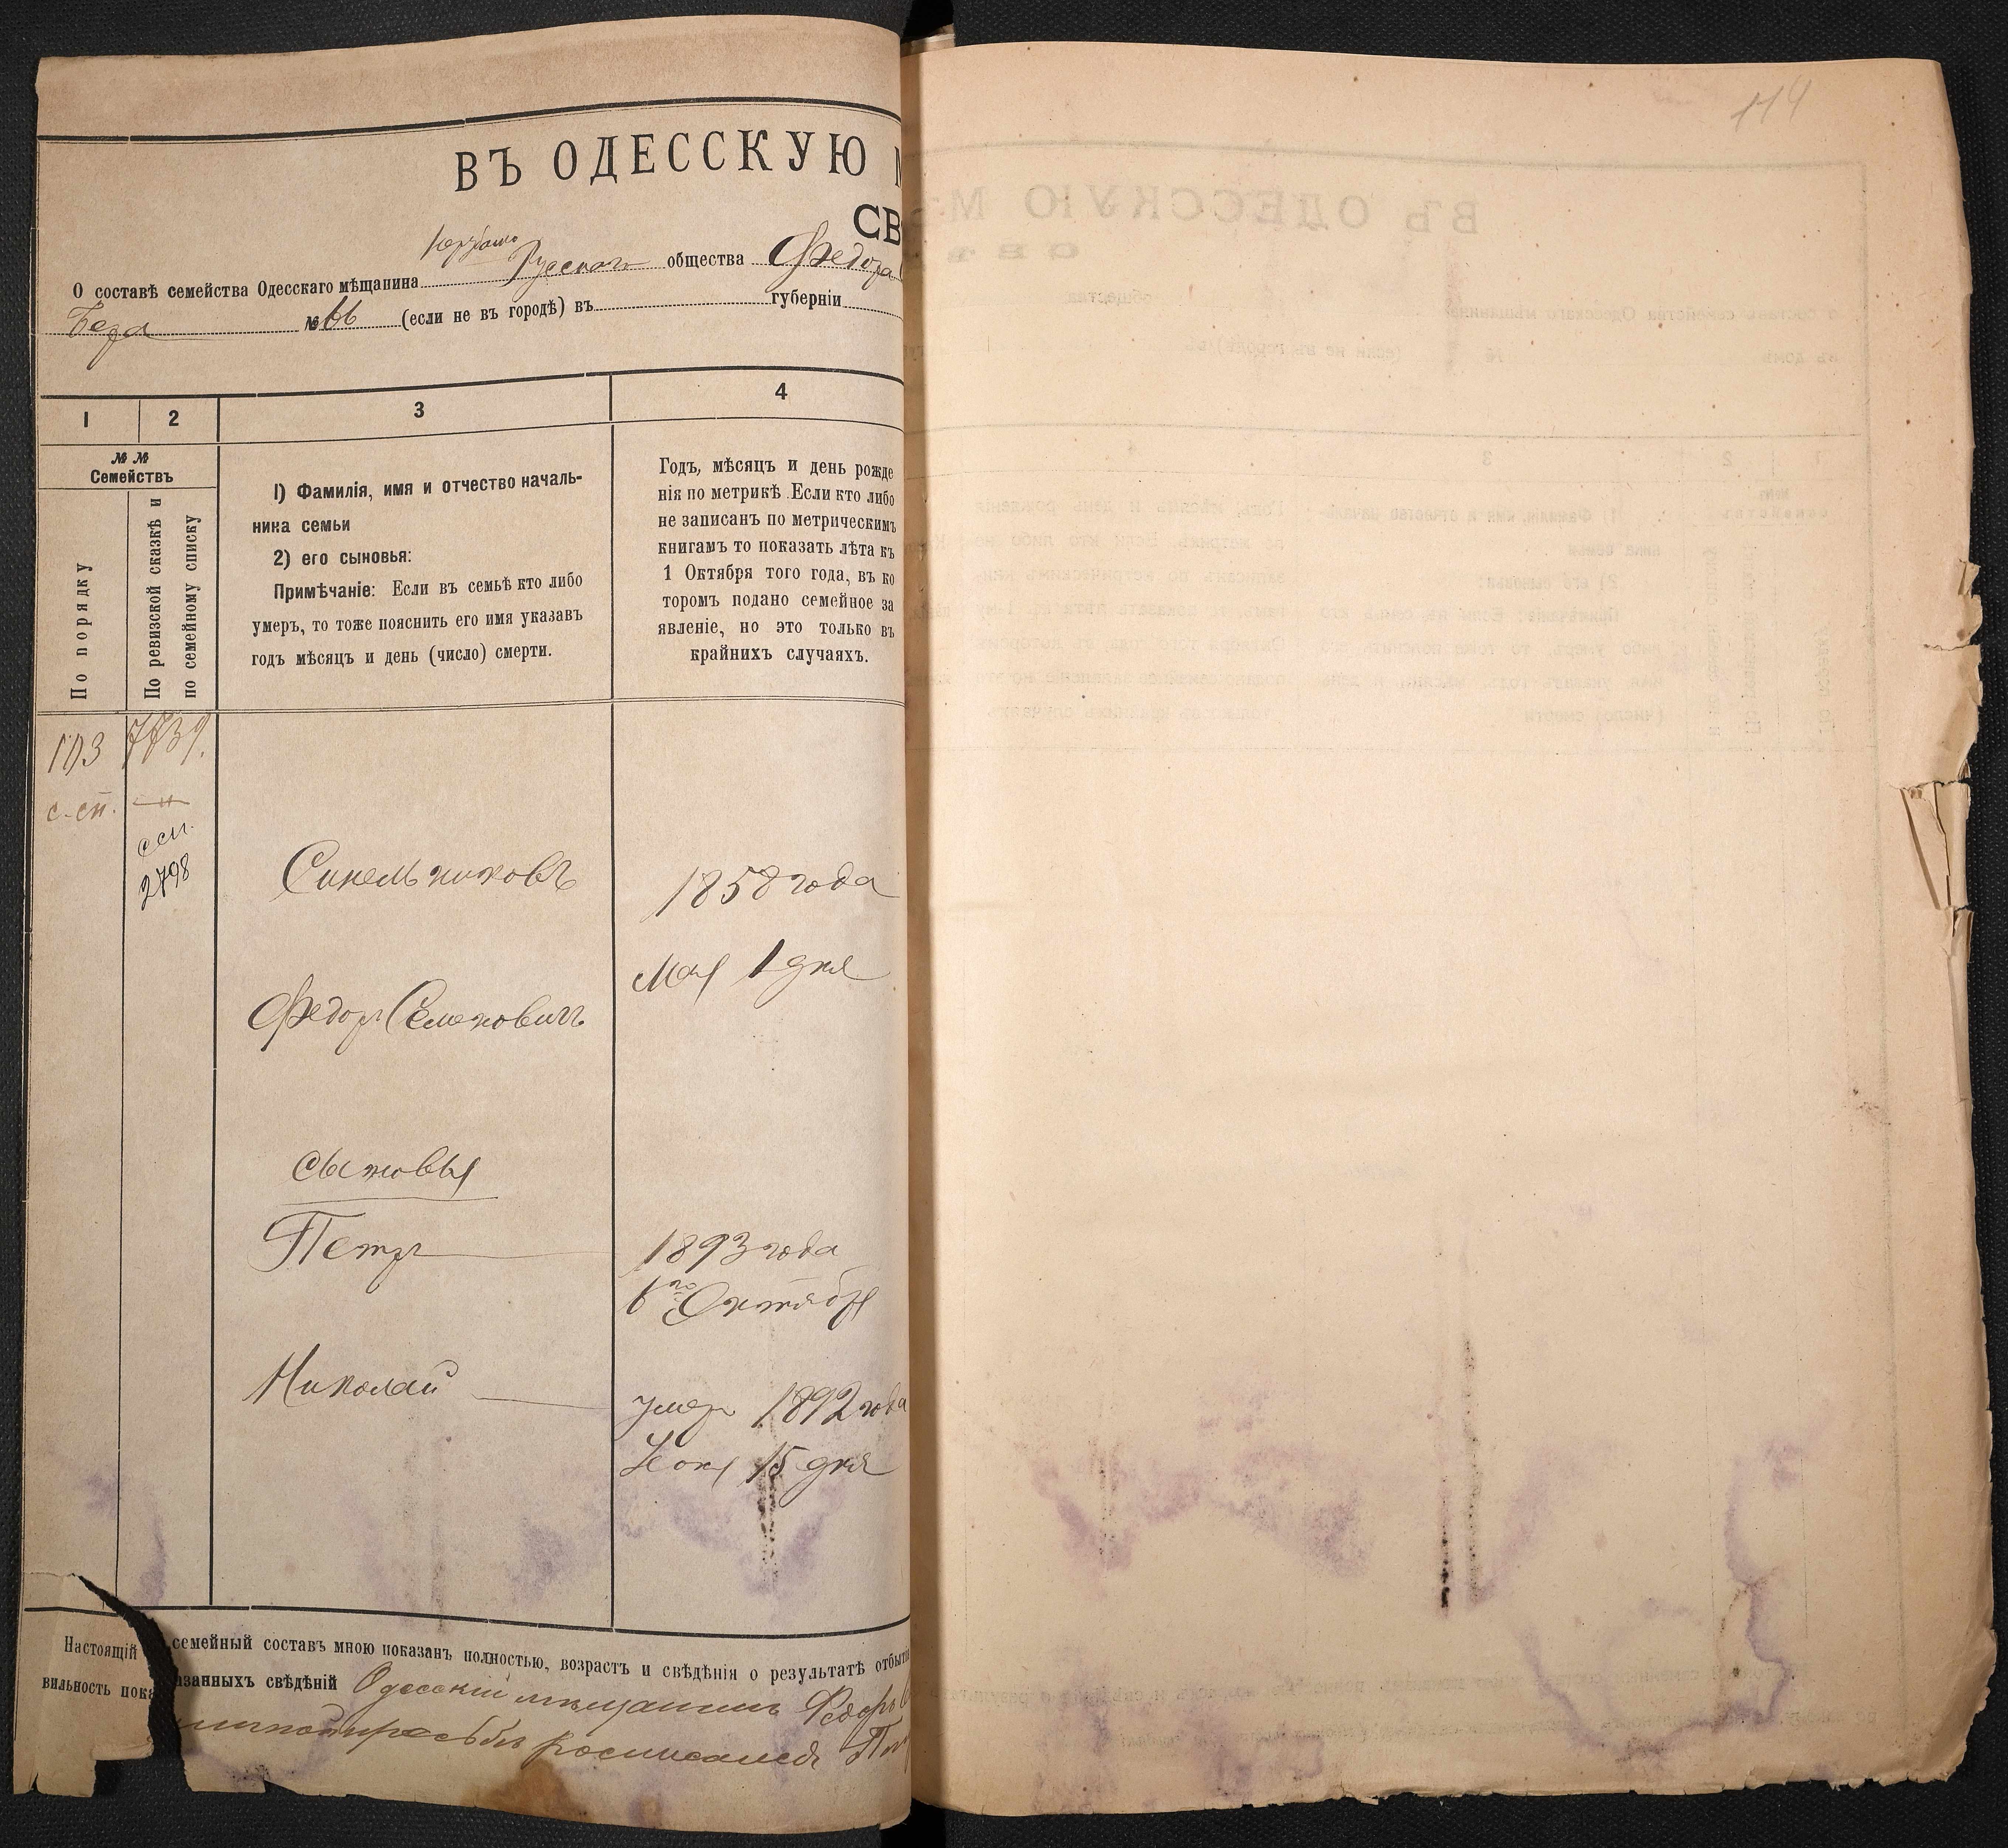 114
ВЪ ОДЕССКУЮ М
СВ
О составѣ семейства Одесскаго мѣщанина Русскаго общества Федора
№ 66 (если не въ городѣ) въ губерніи
1 2 3 4
№ №
Семействъ
По порядку
По ревизской сказкѣ и
по семейному списку
1) Фамилія, имя и отчество началь-
ника семьи
2) его сыновья:
Примѣчаніе: Если въ семьѣ кто либо
умеръ, то тоже пояснить его имя указавъ
годъ мѣсяцъ и день (число) смерти.
Годъ, мѣсяцъ и день рожде
нія по метрикѣ Если кто либо
не записанъ по метрическимъ
книгамъ то показать лѣта къ
1 Октября того года, въ ко
торомъ подано семейное за
явленіе, но это только въ
крайнихъ случаяхъ.
193 7839.
с. сп.
ссп.
2798
Синельниковъ 1858 года
Мая 1 дня
Федоръ Семеновичъ
сыновья
Петръ 1893 года
6го Октября
Николай умеръ 1892 года
15 дня
Настоящій семейный составъ мною показанъ полностью, возрастъ и свѣдѣнія о результатѣ отбыті
вильность пока занныхъ свѣдѣній Одесскій мѣщанинъ Федоръ С
росписался
ВЪ ОДЕССКУЮ М